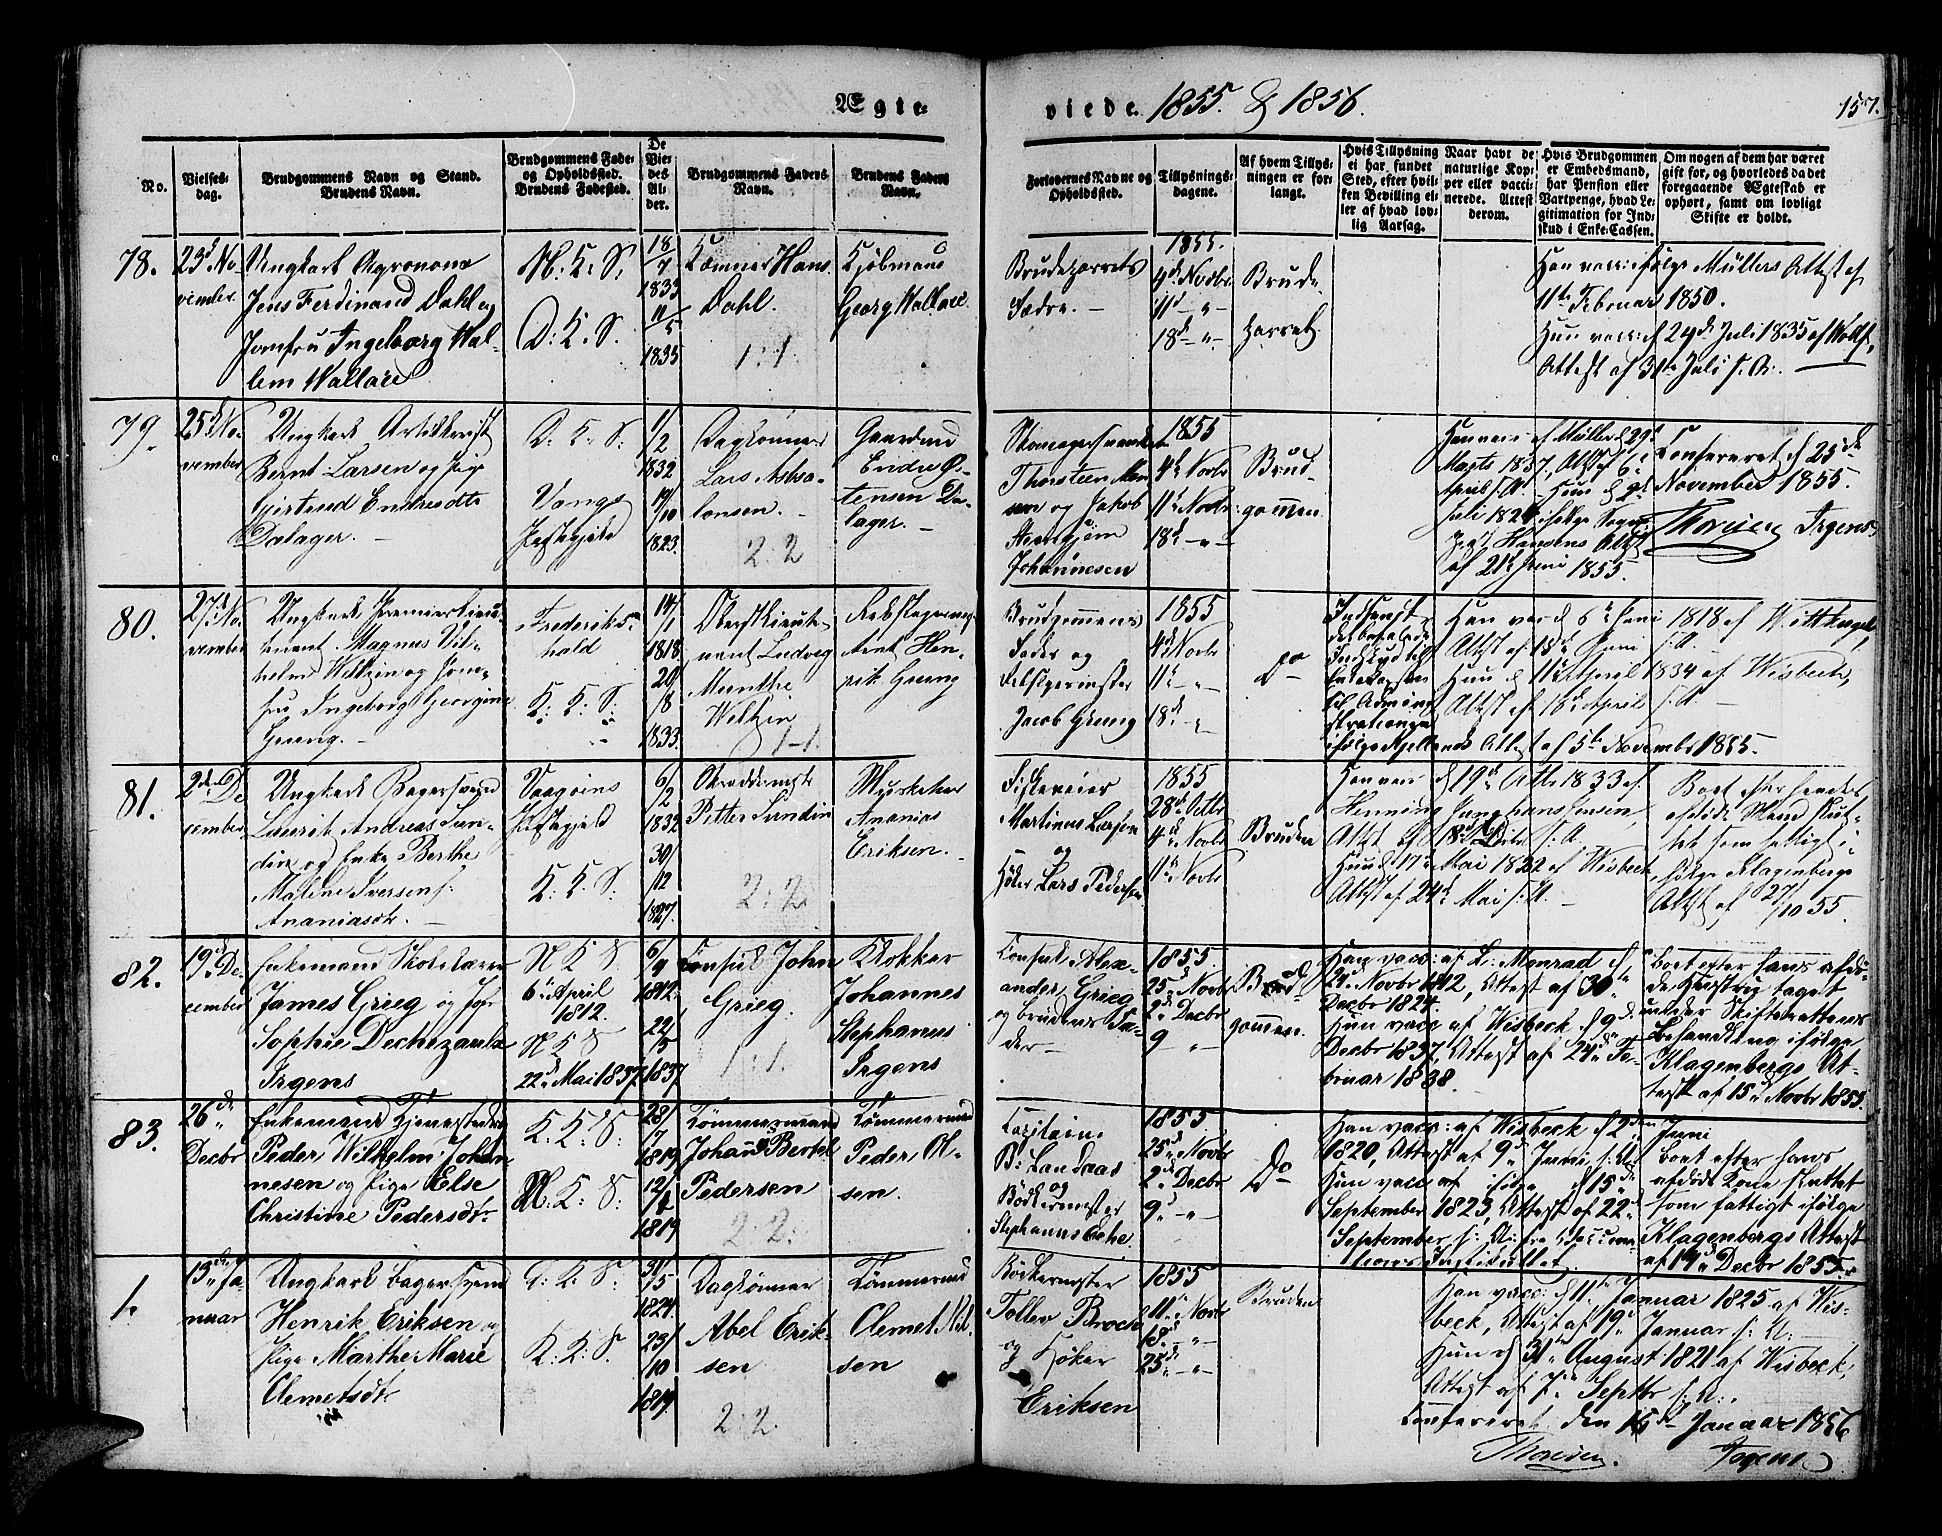 Ægte-
viede. 1855. & 1856.
157.
No.
Vielses-
dag.
Brudgommens Navn og Stand.
Brudens Navn.
Brudgommens Føde-
og Opholdssted.
Brudens Fødested.
De
Vie-
des
Al-
der.
Brudgommens Faders
Navn.
Brudens Faders
Navn.
Forlovernes Navne og
Opholdssted.
Tillysnings-
dagene.
Af hvem Tillys-
ningen er for-
langt.
Hvis Tillysning
ei har fundet
Sted, efter hvil-
ken Bevilling el-
ler af hvad lov-
lig Aarsag.
Naar havt de
naturlige Kop-
per eller vacci-
nerede. Attest
derom.
Hvis Brudgommen
er Embedsmand,
har Pension eller
Vartpenge, hvad Le-
gitimation for Ind-
skud i Enke-Cassen.
Om nogen af dem har været
gift for, og hvorledes da det
foregaaende Ægteskab er
ophørt, samt om lovligt
Skifte er holdt.
78.
25d No-
vember.
Ungkarl Agronom
Jens Ferdinand Dahl og
Jomfru Ingeborg Wal-
lem Wallace
N: K: S.
D: K: S.
18/7
1833
11/5
1835
Kæmner Hans
Dahl.
1:1.
Kjøbmand
Georg Wallace.
Brudeparrets
Fædre. —
1855.
4d Novbr
11d — " —
18d — " —
Brude-
parret
Han vacc: ifølge Müllers Attest af
11te Februar 1850.
Hun vacc: d 29de Juli 1835 af Wolf,
Attest af 31te Juli s. A. —
79.
25d No-
vember
Ungkarl Artillerist
Bernt Larsen og Pige
Giertrud Endresdtr
Dalager. —
D: K: S:
Vangs
Præstegjeld
1/2
1832
17/10
1823.
Dagkønner
Lars Absa-
lonsen. —
2:2
Gaardmd
Endre Ø-
tensen Da-
lager. —
Skomagersvend
Thorsteen Mon-
sen og Jakob
Johannesen
1855
4d Novbr
11d Novbr
18d — " —
Brud-
gommen
Han vacc: af Müller d 29d
Marts 1837, Attst af 6te
April s: A. — Hun d 9d
Juli 1824 ifølge Sogne-
præst Hansens Attst
af 21d Juni 1855.
Confereret d 25de
November 1855.
Thorsen Irgens
80.
27d No-
vember
Ungkarl Premierlieut-
nant Magnus Vil-
helm Weltzin og Jom-
fru Ingeborg Georgine
Grung. —
Frederiks-
hald
K: K: S:
14/1
1818
20/8
1833.
Oberstlieute-
nant Ludvig
Munthe
Weltzin
1-1.
Rebslagermes-
Hen-
rik Grung
Brudgommens
Fader og
Jacob Grung
1855
4d Novbr
11d — " —
18d — "
Do
Indsendt
det befalede
Indskud til
Enkekassen
til Admini-
strationen
ifølge Kjellands Attest af 5te Novembr 1855.
Han vacc d 6te Juni 1818 af Witthugel,
Attst af 18d Juni s: A.
Hun d 11te April 1834 af Wisbech,
Attst af 16d April s: A. —
81.
2den De-
cember
Ungkarl Bagersvend
Laurits Andreas Sun-
din og Enke Berthe
Malene Iversen f.
Ananiasdtr. —
Vaagøens
Præstegjeld
K: K: S.
6/2
1832
30/12
1827.
Skræddermstr
Petter Sundin
2:2.
Musketeer
Ananias
Eriksen. —
Fiskeveier
Martinus Larsen
og
Høker Lars Pedersen
1855
28d Octbr
4d Novbr
11te Novbr
Bruden
Han vacc d 19d Octb 1833 af
Henning Junghanshusen,
Attst af 18d Decbr s: A
Hun d 17d Mai 1832 af Wisbeck,
Attst af 24d Mai s: A. —
Boet efter hendes
afdøde Mand slut-
tet som fattigt i-
følge Klagenbergs
Attst af 27/10 55.
82.
19d De-
cember
Enkemand Skolelærer
James Grieg og Jfr
Sophie Dechezaulx
Irgens
N K S
6te April
1812.
N K S
22d Mai 1837
6/4
1812.
22/5
1837
Consul John
Grieg.
1:1.
Klokker
Johannes
Stephanus
Irgens
Consul Alex-
ander Grieg
og Brudens Fa-
der —
1855
25d Novbr
2d Decbr
9 "
Brud-
gommen.
Han vacc: af L: Monrad d
21d Novbr 1812, Attest af 30te
Decbr 1824.
Hun vacc af Wisbeck d 9d
Decbr 1837, Attest af 24d Fe-
bruar 1838.
Boet efter hans afdø-
de Hustru taget
under Skifterettens
Behandling ifølge
Klagenbergs At-
test af 15d Novbr 1855.
83.
26de "
Decbr
Enkemand Tjenestedr
Peder Wilhelm Johan-
nesen og Pige Else
Christine Pedersdtr
K: K: S:
N: K: S:
28/7
1819
12/2
1819
Tømmermand
Johans Bertel
Pedersen
2:2:
Tømmermd
Peder Ol-
sen.
Capitain
B: Landaas
og
Bødkermester
Stephanus Behe.
1855.
25d Novbr
2d Decbr
9d — " —
Do
Han vacc: af Wisbeck d 2den Juni
1820, Attest af 9d Juni s: A.
Hun vacc af ifølge d 15de
September 1823, Attest af 22d
September s: A: fra Vaccina-
tions Institutet.
Boet efter hans
afdøde Kone sluttet
som fattigt ifølge
Klagenbergs Attest
af 14d Decbr 1855.
1.
13de Ja-
nuar
Ungkarl Bagersvend
Henrik Eriksen og
Pige Marthe Marie
Clemetsdtr
K: K: S.
K: K: S.
31/5
1824.
23/10
1819.
Dagkønner
Abel Erik-
sen
2:2.
Tømmermd
Clemet Nil-
sen
Bødkermester
Tollev Broch
og Høker
Eriksen
1855
11te Novbr
18d — " —
25de — " —
Bruden
Han vacc: d 11te Januar 1825 af Wis-
beck, Attest af 19d Januar s: A: —
Hun d 31te August 1821 af Wisbeck,
Attest af 7de Septbr s: A:.
Confereret den 15d Januar 1856
Thorsen. Irgens